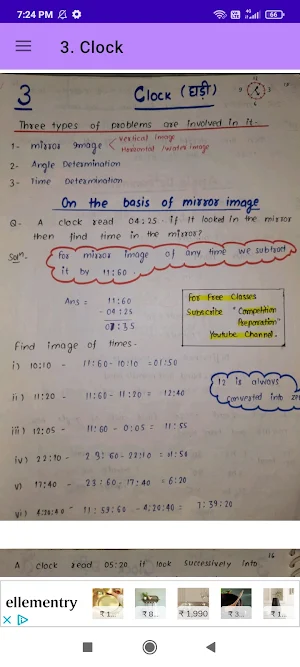 7:24 PM
66
3. Clock
3
Clock (घड़ी)
12
9
3
6
Three types of problems are involved in it-
1- mirror Image
Vertical image
Horizontal /water image
2- Angle Determination
3- Time Determination
On the basis of mirror image
Q- A clock read 04:25 - if it looked in the mirror
then find time in the mirror?
Solⁿ.
For mirror image of any time we subtract
it by 11:60.
Ans = 11:60
- 04:25
07:35
For Free Classes
Subscribe "Competition
Preparation"
Youtube Channel.
Find image of times-
i) 10:10 - 11:60-10:10 = 01:50
12 is always
converted into
ii) 11:20 - 11:60 - 11:20 = 12:40
iii) 12:05 - 11:60 - 0:05 = 11:55
iv) 22:10 - 23:60-22:10 = 01:50
v) 17:40 - 23:60-17:40 = 6:20
vi) 4:20:40 - 11:59:60 - 4:20:40 = 7:39:20
16
A clock read 05:20 if look successively into
ellementry
₹1...
₹8...
₹1,990
₹3...
₹1...